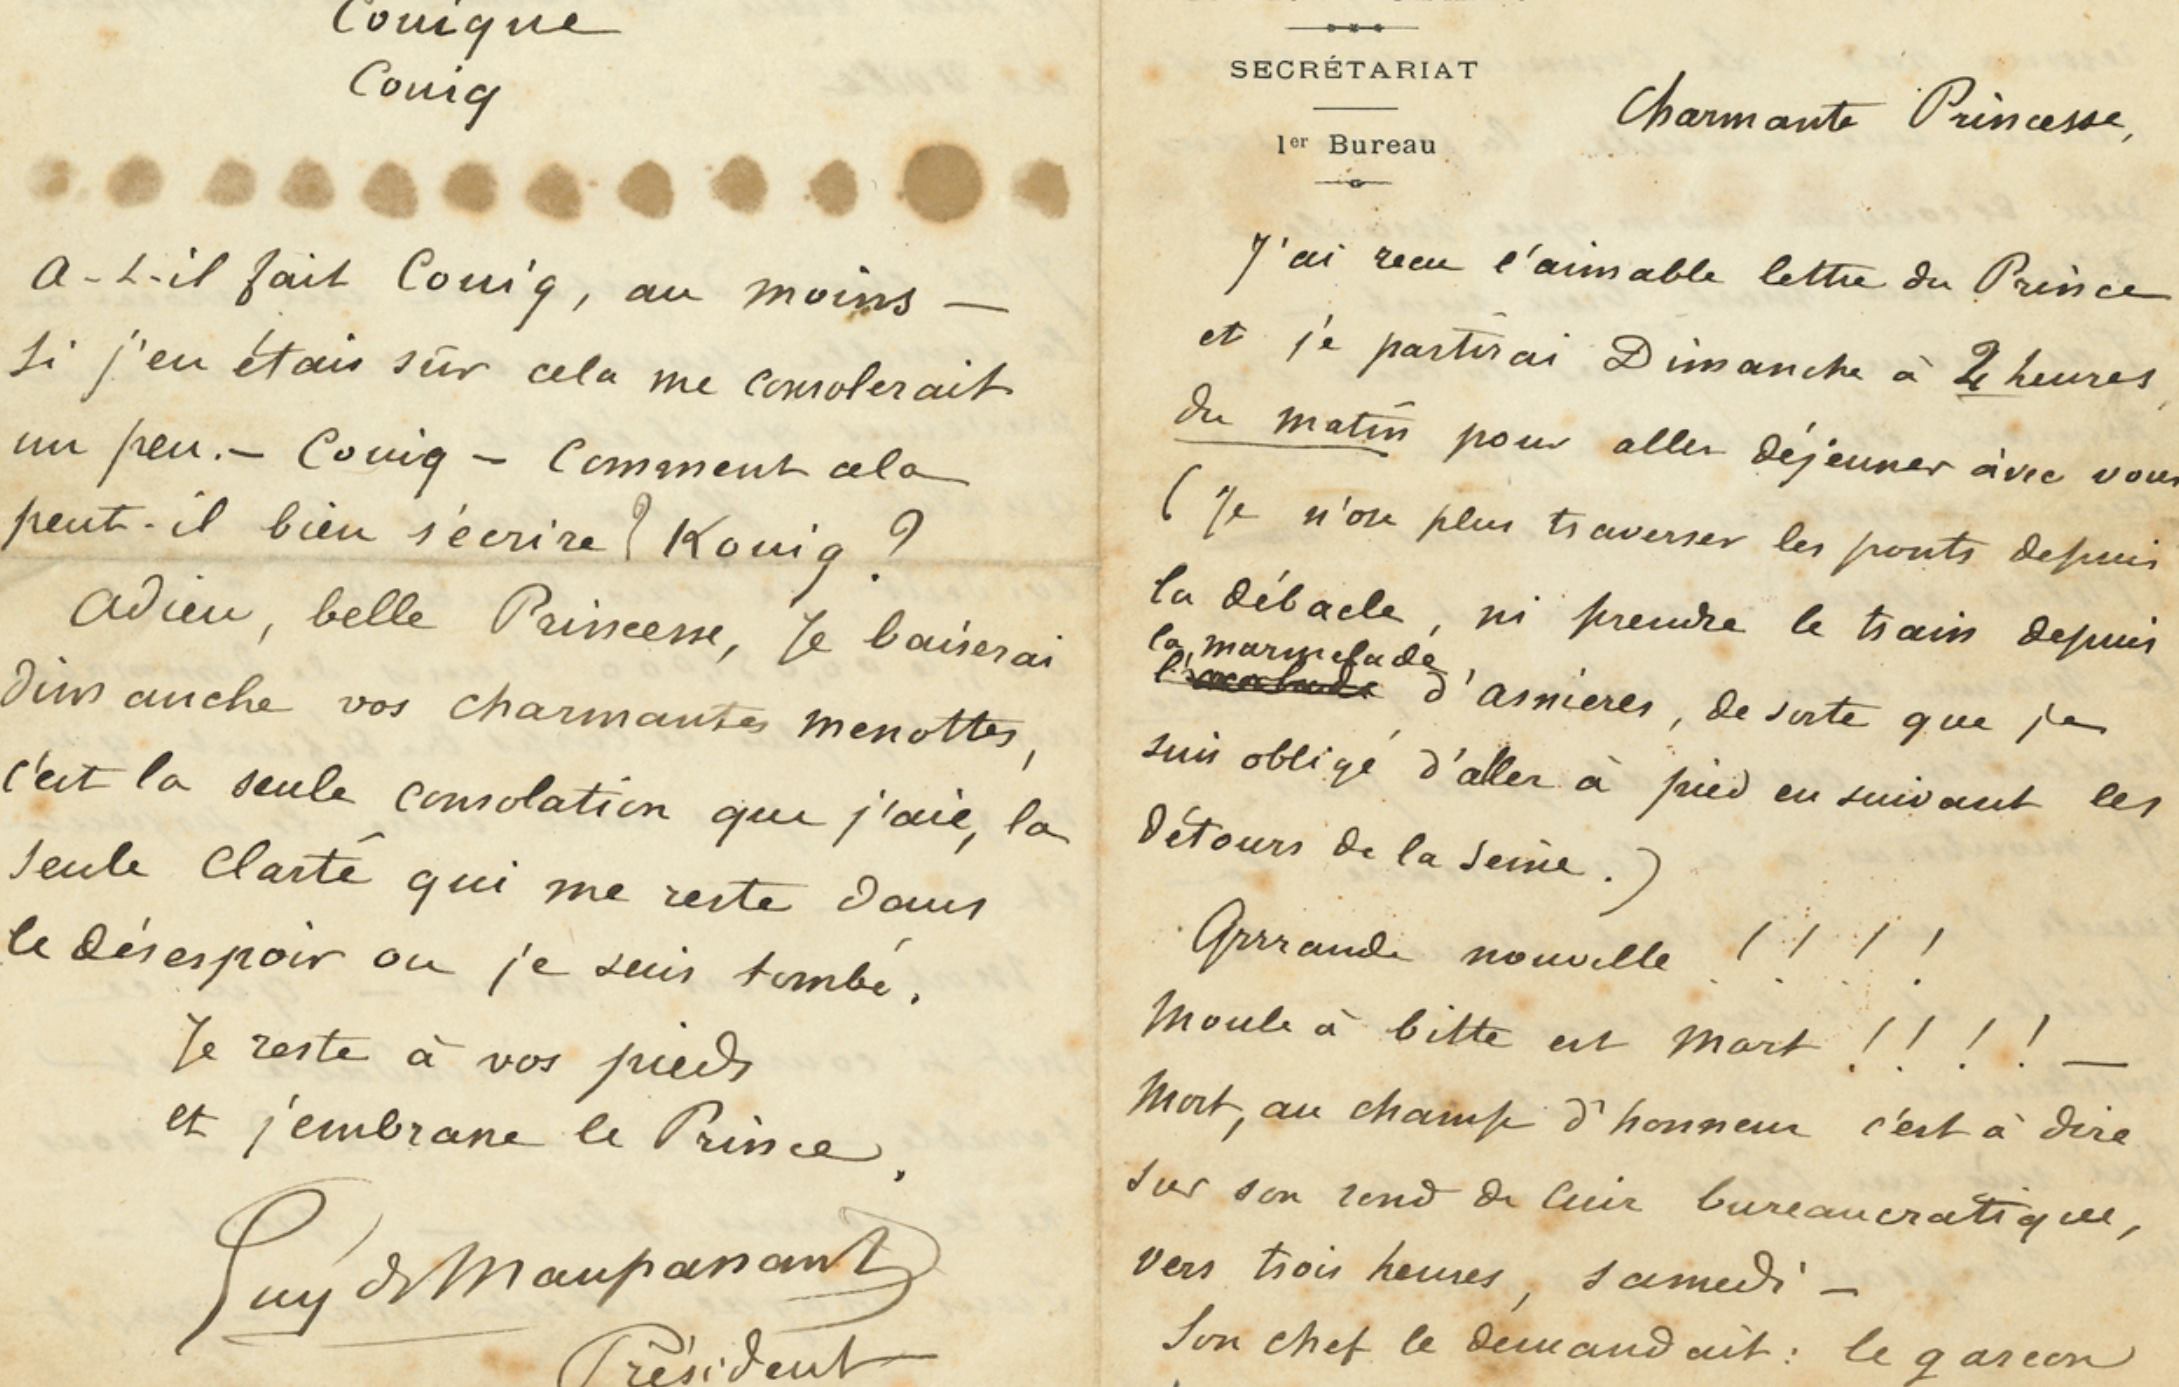 Couique
Couiq
a-t-il fait Couiq, au moins —
si j'en étais sûr cela me consolerait
un peu. — Couiq — Comment cela
peut-il bien s'écrire ? Kouiq ?
Adieu, belle Princesse, Je baiserai
dimanche vos charmantes menottes,
c'est la seule consolation que j'aie, la
seule clarté qui me reste dans
le désespoir ou je suis tombé.
Je reste à vos pieds
et j'embrasse le Prince.
Guy de Maupassant
Président
SECRÉTARIAT
1er Bureau
Charmante Princesse,
J'ai recu l'aimable lettre du Prince
et je partirai Dimanche à heures
du matin pour aller déjeuner avec vous
(Je n'ose plus traverser les ponts depuis
la débacle, ni prendre le train depuis
la marmelade
d'asnieres, de sorte que je
suis obligé d'aller à pied en suivant les
détours de la Seine.)
Grrrande nouvelle !!!!
Moule à bitte est mort !!!! —
Mort, au champ d'honneur c'est à dire
sur son rond de cuir bureaucratique,
vers trois heures, samedi —
Son chef le demandait : le garcon